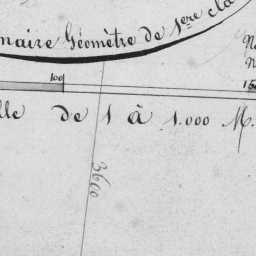 naire Géomètre de 1ere cla
N
N
100
150
lle de 1 à 1.000 M.
3600